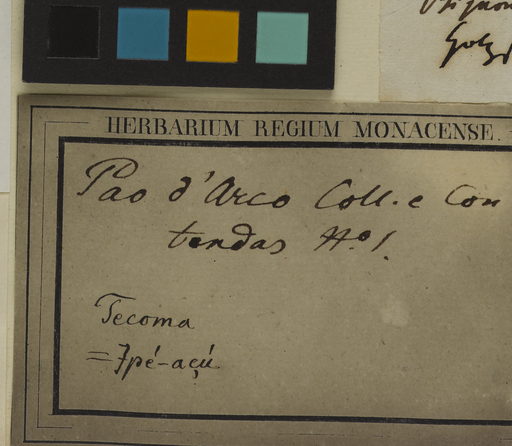 HERBARIUM REGIUM MONACENSE.
Pao d'Arco Coll. e Con
tendas No 1.
Tecoma
= Ipé-açú